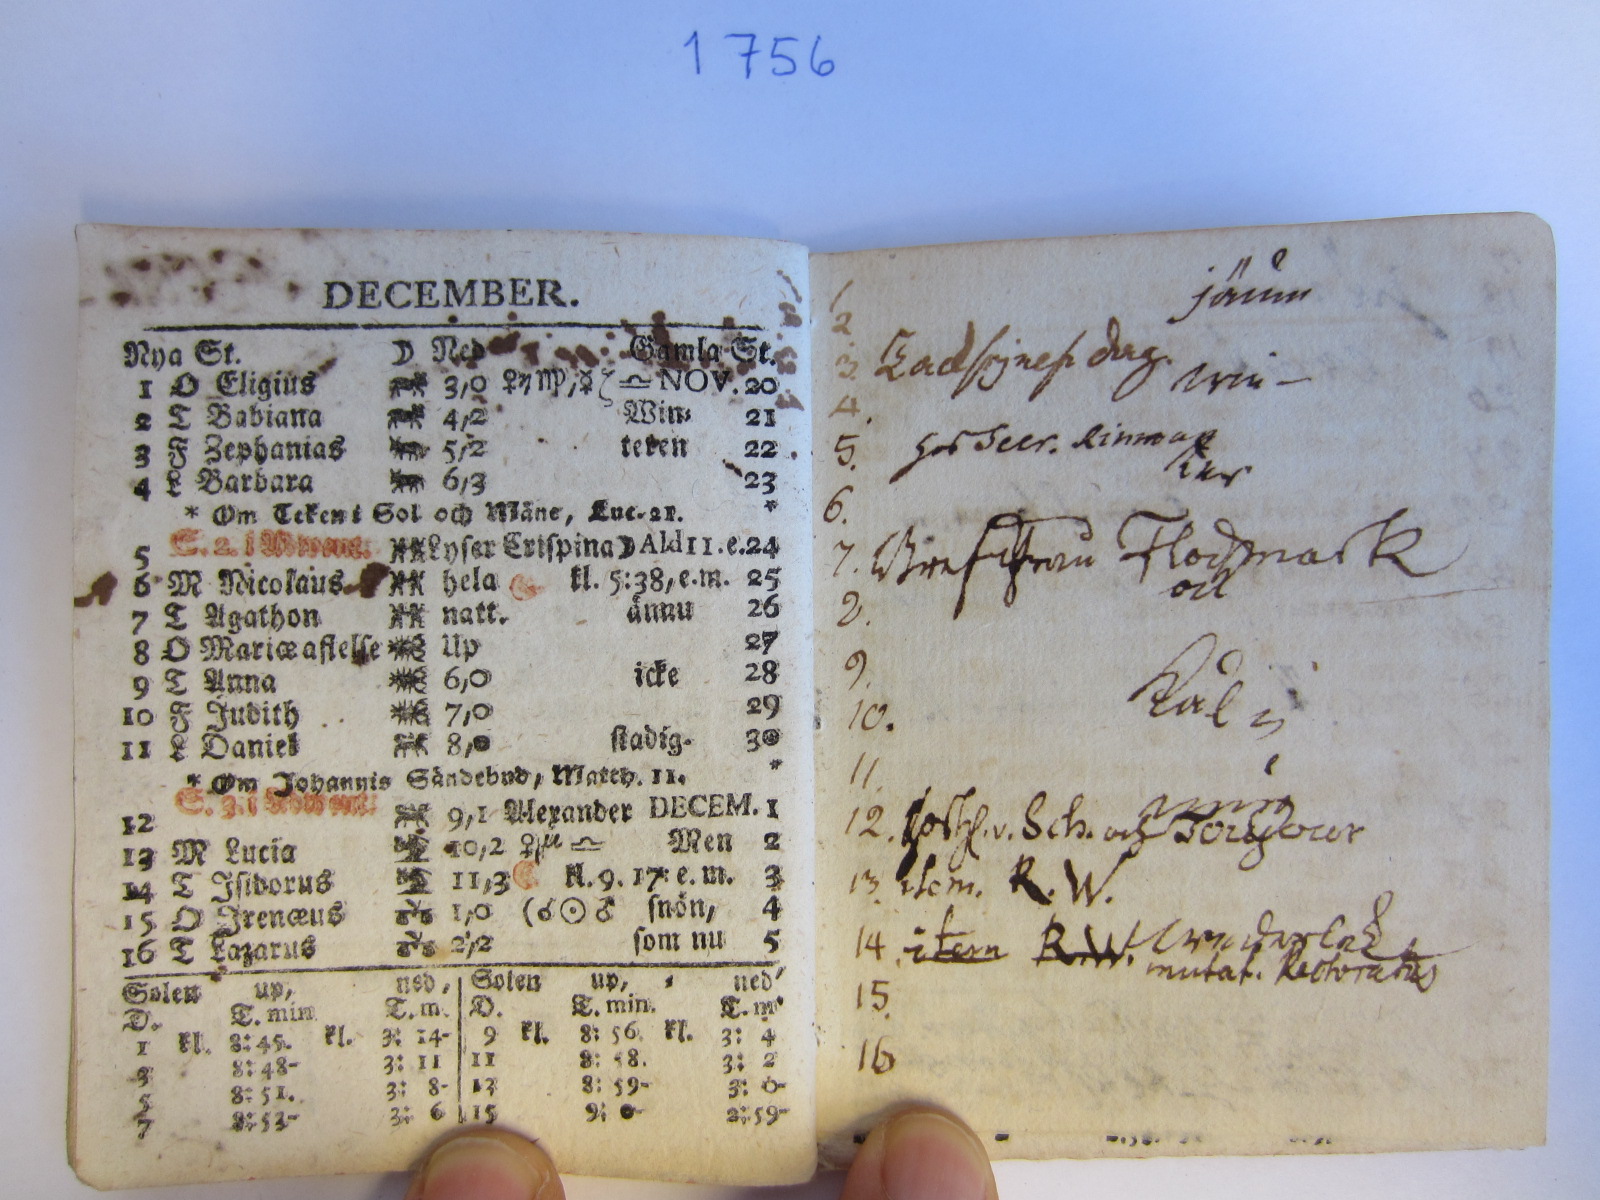 1756
DECEMBER.
Nya St. ☽ Ned Gamla St.
1 O Eligius 3,0 ♎ NOV. 20
2 T Babiana 4,2 Win- 21
3 F Zephanias 5,2 teren 22
4 L Barbara 6,3 23
* Om Teken i Sol och Måne, Luc. 21. *
5 S. 2. i Advent. Lyser Crispina ☽ Ald 11. e. 24
6 M Nicolaus hela kl. 5:38, e.m. 25
7 T Agathon natt. ännu 26
8 O Mariæ aflelse Up 27
9 T Anna 6,0 icke 28
10 F Judith 7,0 29
11 L Daniel 8,0 stadig. 30
* Om Johannis Sändebud, Matth. 11. *
S. 3. i Advent.
12 9,1 Alexander DECEM. 1
13 M Lucia 10,2 ♎ Men 2
14 T Isidorus 11,3 kl. 9. 17: e. m. 3
15 O Irenæus 1,0 (☌☉♂ snön, 4
16 T Lazarus 2,2 som nu 5
Solen up, ned, Solen up, ned
D. T. min. T. m. D. T. min. T. m.
1 kl. 8:45. kl. 3: 14- 9 kl. 8: 56. kl. 3: 4
3 8:48- 3: 11 11 8: 58. 3: 2
5 8: 51. 3: 8- 13 8: 59- 3: 0-
7 8:53- 3: 6 15 9: 0- 2:59-
1.
2.
3. dag.
4.
5. hos Secr.
6.
7. Flodmark
och
8.
9.
10.
11.
12. v. Sch. och
13. item. R. W.
14. item R.W.
mutat. Rectoratus
15.
16